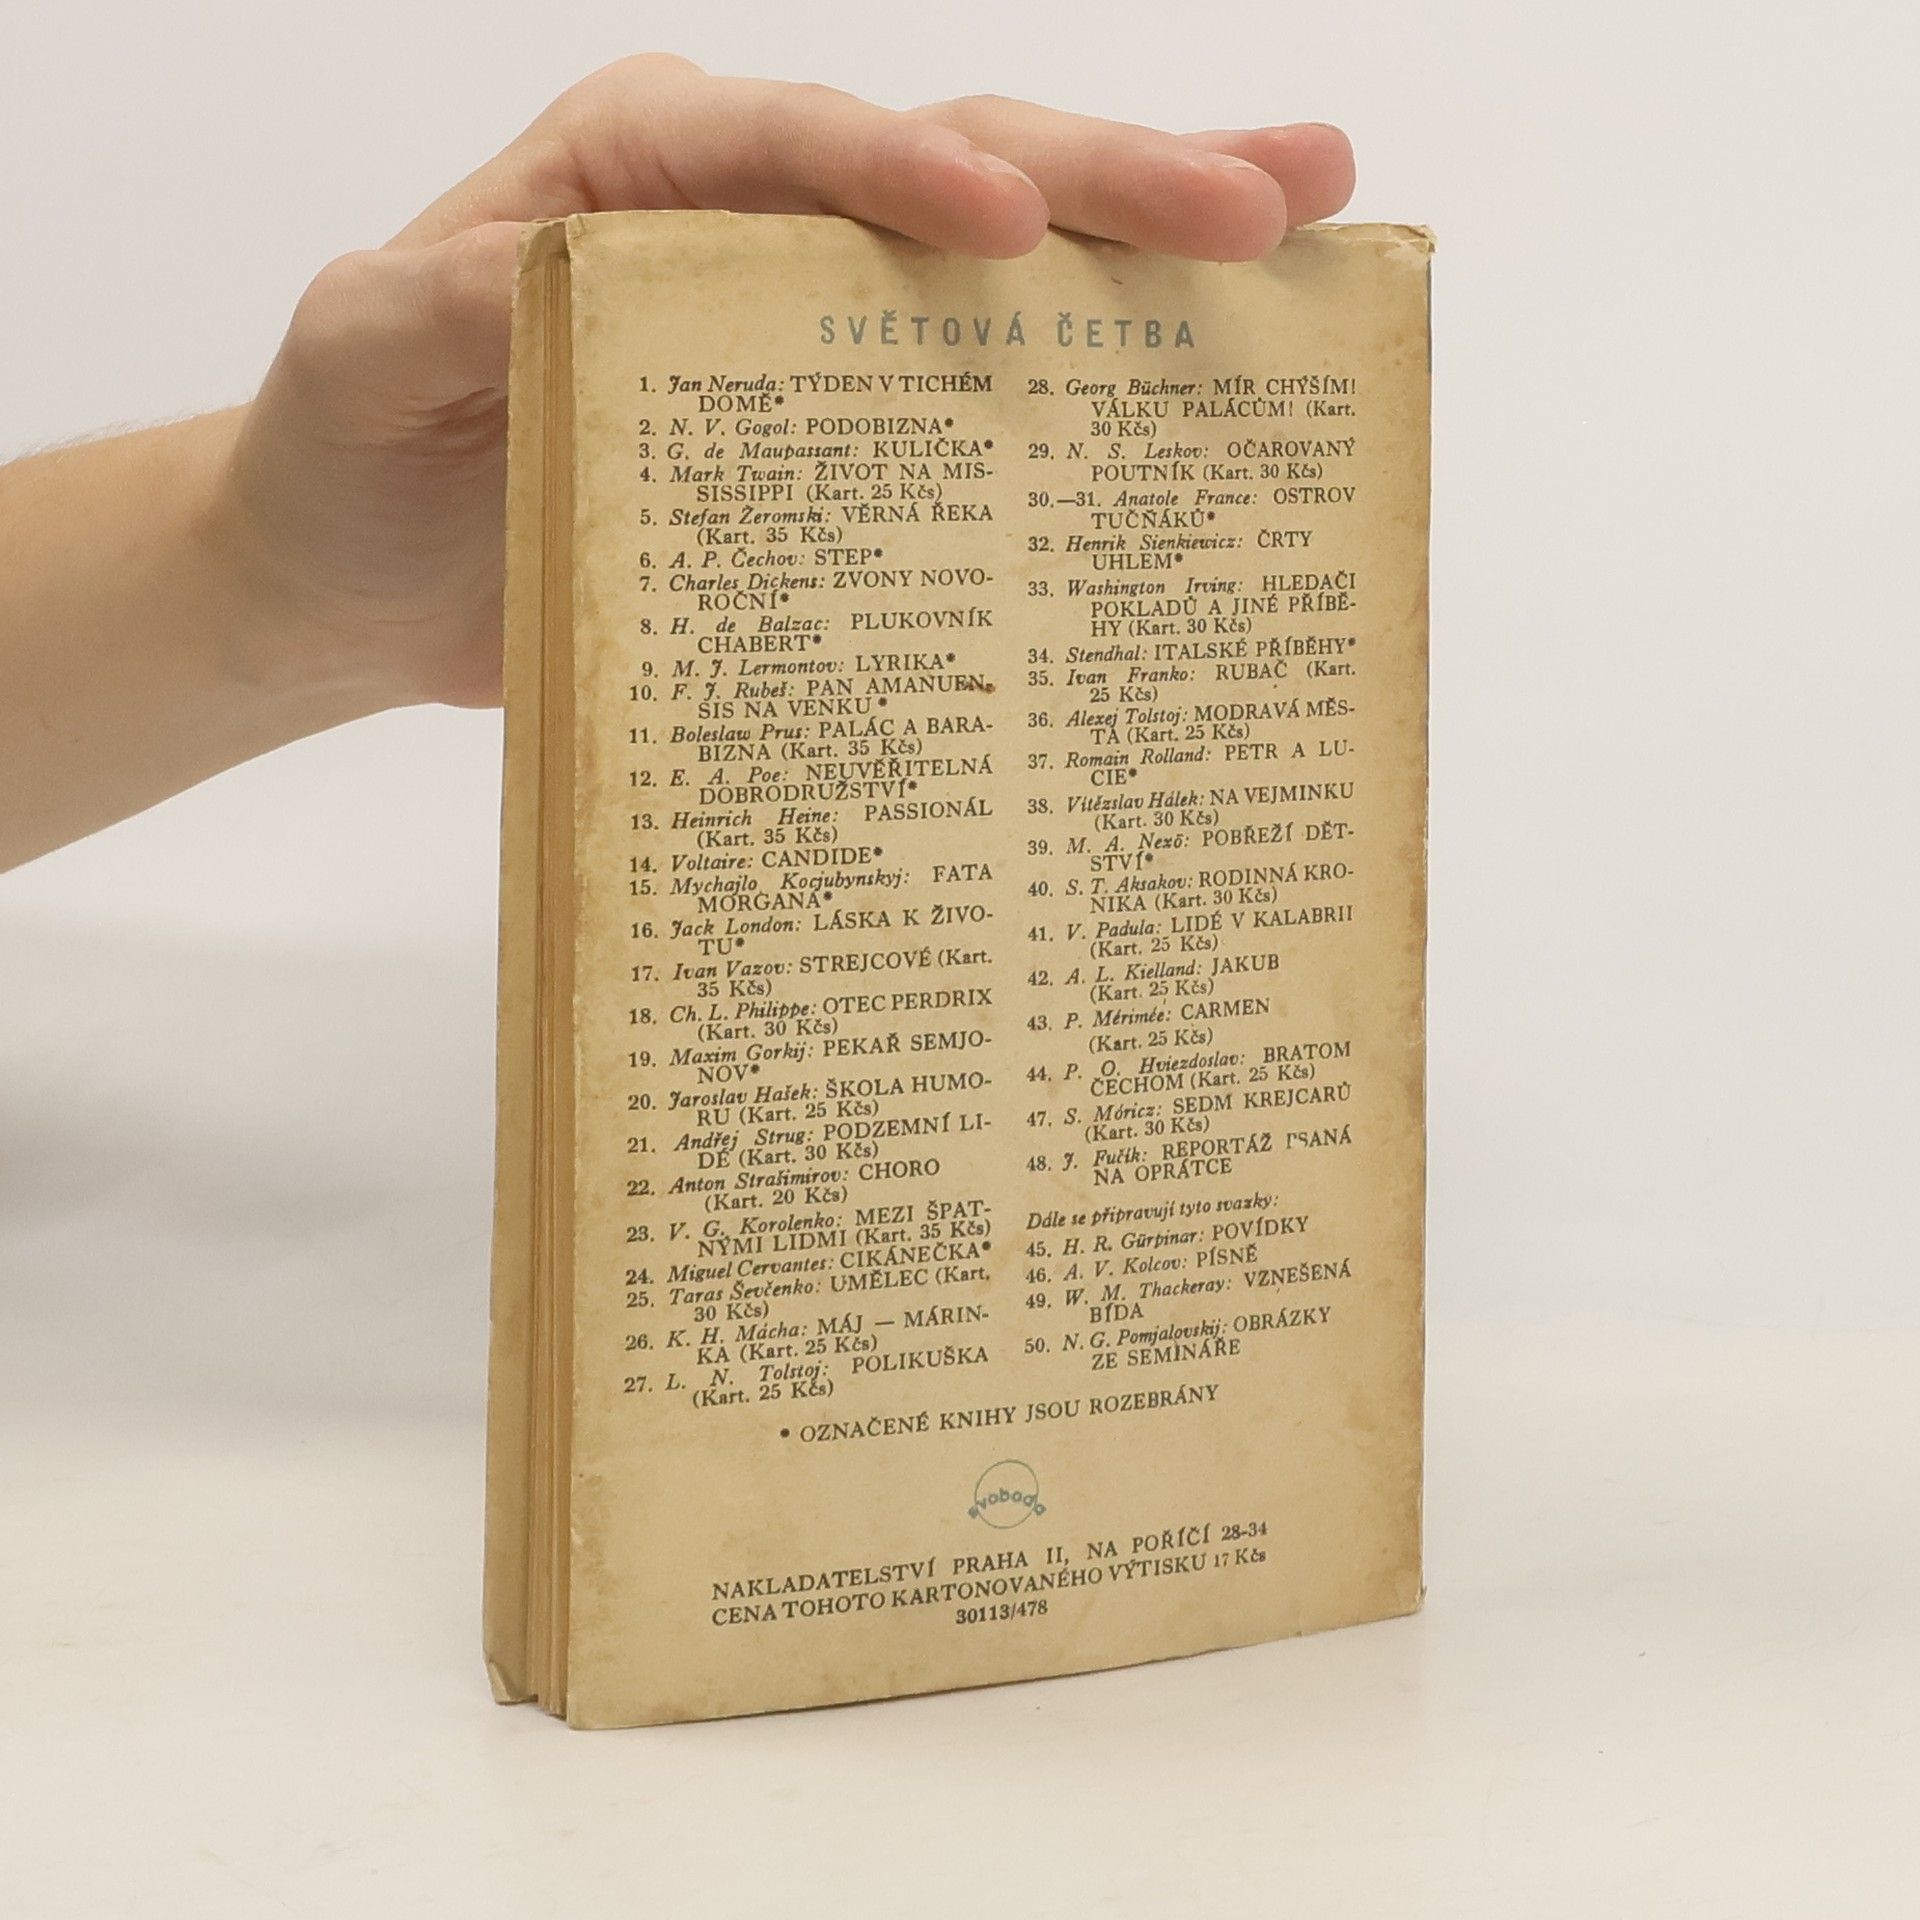 SVĚTOVÁ ČETBA
1. Jan Neruda: TÝDEN V TICHÉM
DOMĚ*
2. N. V. Gogol: PODOBIZNA*
3. G. de Maupassant: KULIČKA*
4. Mark Twain: ŽIVOT NA MIS-
SISSIPPI (Kart. 25 Kčs)
5. Stefan Žeromski: VĚRNÁ ŘEKA
(Kart. 35 Kčs)
6. A. P. Čechov: STEP*
7. Charles Dickens: ZVONY NOVO-
ROČNÍ*
8. H. de Balzac: PLUKOVNÍK
CHABERT*
9. M. J. Lermontov: LYRIKA*
10. F. J. Rubeš: PAN AMANUEN-
SIS NA VENKU*
11. Boleslaw Prus: PALÁC A BARA-
BIZNA (Kart. 35 Kčs)
12. E. A. Poe: NEUVĚŘITELNÁ
DOBRODRUŽSTVÍ*
13. Heinrich Heine: PASSIONÁL
(Kart. 35 Kčs)
14. Voltaire: CANDIDE*
15. Mychajlo Kocjubynskyj: FATA
MORGANA*
16. Jack London: LÁSKA K ŽIVO-
TU*
17. Ivan Vazov: STREJCOVÉ (Kart.
35 Kčs)
18. Ch. L. Philippe: OTEC PERDRIX
(Kart. 30 Kčs)
19. Maxim Gorkij: PEKAŘ SEMJO-
NOV*
20. Jaroslav Hašek: ŠKOLA HUMO-
RU (Kart. 25 Kčs)
21. Andřej Strug: PODZEMNÍ LI-
DÉ (Kart. 30 Kčs)
22. Anton Strašimirov: CHORO
(Kart. 20 Kčs)
23. V. G. Korolenko: MEZI ŠPAT-
NÝMI LIDMI (Kart. 35 Kčs)
24. Miguel Cervantes: CIKÁNEČKA*
25. Taras Ševčenko: UMĚLEC (Kart.
30 Kčs)
26. K. H. Mácha: MÁJ — MÁRIN-
KA (Kart. 25 Kčs)
27. L. N. Tolstoj: POLIKUŠKA
(Kart. 25 Kčs)
28. Georg Büchner: MÍR CHÝŠÍM!
VÁLKU PALÁCŮM! (Kart.
30 Kčs)
29. N. S. Leskov: OČAROVANÝ
POUTNÍK (Kart. 30 Kčs)
30.—31. Anatole France: OSTROV
TUČŇÁKŮ*
32. Henrik Sienkiewicz: ČRTY
UHLEM*
33. Washington Irving: HLEDAČI
POKLADŮ A JINÉ PŘÍBĚ-
HY (Kart. 30 Kčs)
34. Stendhal: ITALSKÉ PŘÍBĚHY*
35. Ivan Franko: RUBAČ (Kart.
25 Kčs)
36. Alexej Tolstoj: MODRAVÁ MĚS-
TA (Kart. 25 Kčs)
37. Romain Rolland: PETR A LU-
CIE*
38. Vítězslav Hálek: NA VEJMINKU
(Kart. 30 Kčs)
39. M. A. Nexö: POBŘEŽÍ DĚT-
STVÍ*
40. S. T. Aksakov: RODINNÁ KRO-
NIKA (Kart. 30 Kčs)
41. V. Padula: LIDÉ V KALABRII
(Kart. 25 Kčs)
42. A. L. Kielland: JAKUB
(Kart. 25 Kčs)
43. P. Mérimée: CARMEN
(Kart. 25 Kčs)
44. P. O. Hviezdoslav: BRATOM
ČECHOM (Kart. 25 Kčs)
47. S. Móricz: SEDM KREJCARŮ
(Kart. 30 Kčs)
48. J. Fučík: REPORTÁŽ PSANÁ
NA OPRÁTCE
Dále se připravují tyto svazky:
45. H. R. Gürpinar: POVÍDKY
46. A. V. Kolcov: PÍSNĚ
49. W. M. Thackeray: VZNEŠENÁ
BÍDA
50. N. G. Pomjalovskij: OBRÁZKY
ZE SEMINÁŘE
* OZNAČENÉ KNIHY JSOU ROZEBRÁNY
svoboda
NAKLADATELSTVÍ PRAHA II, NA POŘÍČÍ 28-34
CENA TOHOTO KARTONOVANÉHO VÝTISKU 17 Kčs
30113/478